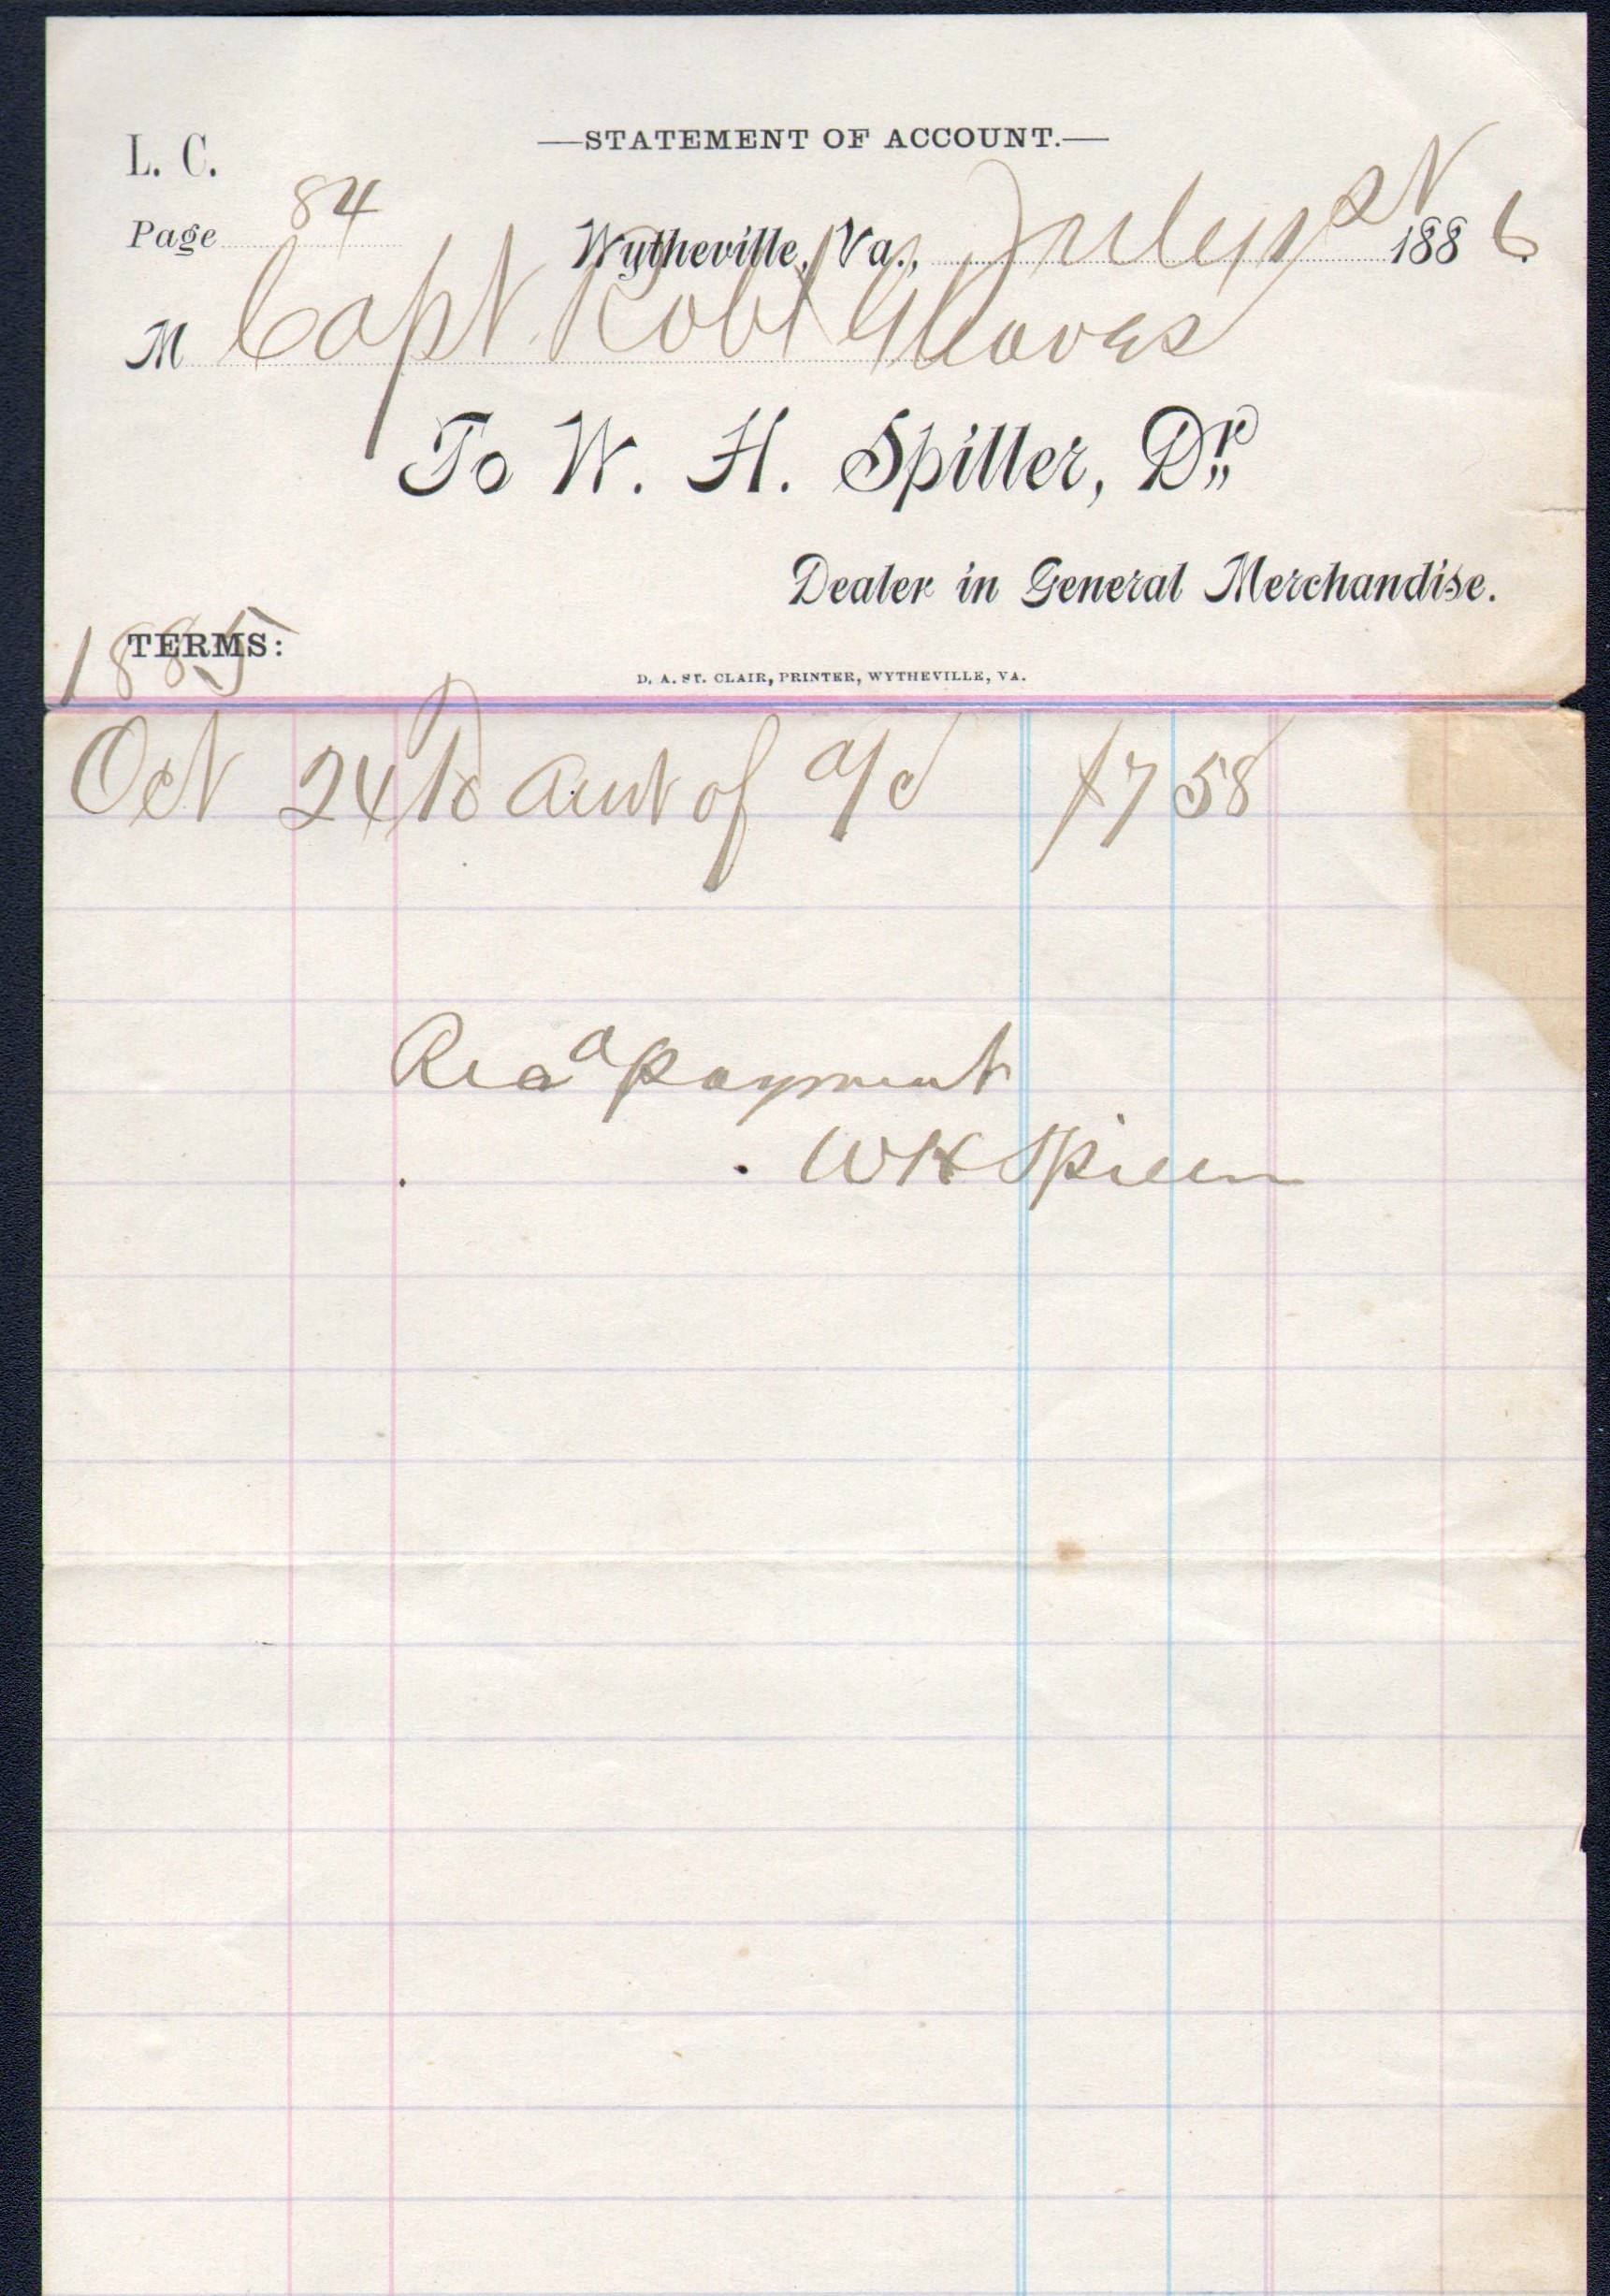 —STATEMENT OF ACCOUNT.—
L. C.
Page 84
Wytheville, Va., July 1st 1886.
M Capt. Robt Gleaves
To W. H. Spiller, Dr.
Dealer in General Merchandise.
TERMS:
D. A. ST. CLAIR, PRINTER, WYTHEVILLE, VA.
1885
Oct 24 To amt of a/c $7 58
Recd payment
WH Spiller